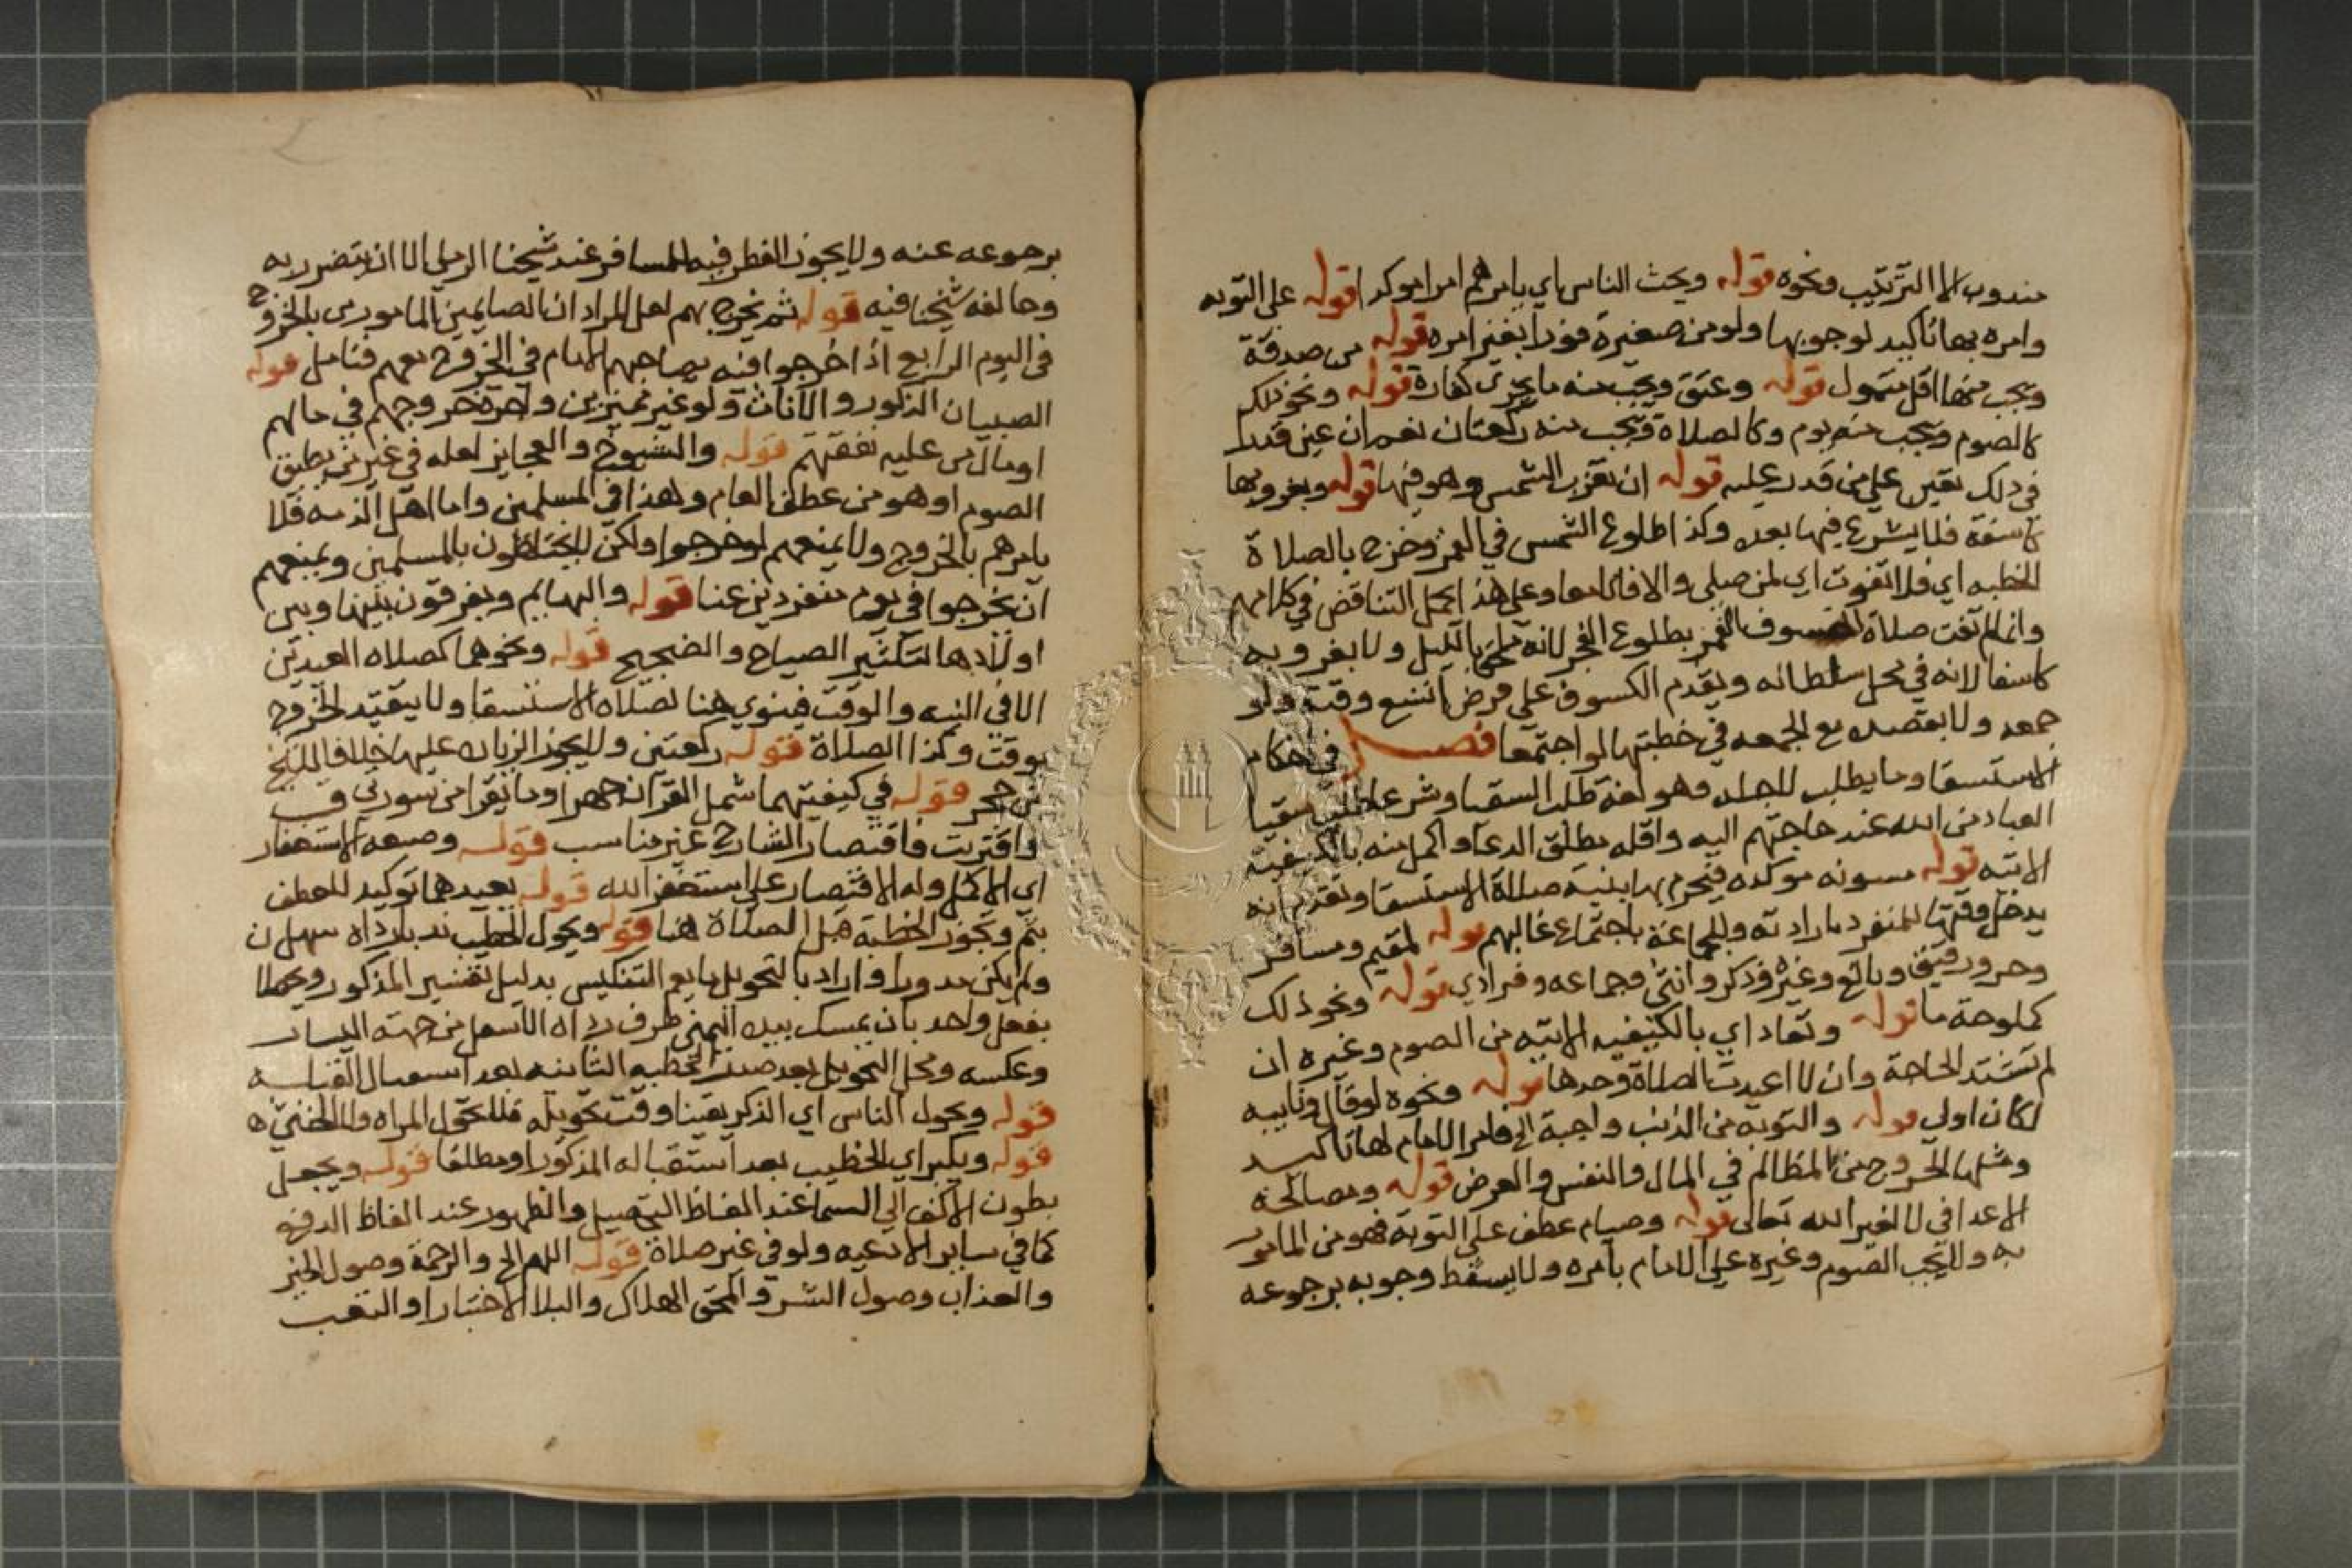 مندوب الا الترتيب ونحوه قوله ويحث الناس اي يامرهم امرا موكدا قوله على التوبه
وامره بها تاكيد لوجوبها ولو من صغيرة فورا بغير امره قوله من صدقة
ويجب منها اقل متمول قوله وعتق ويجب منه ما يجزي كفارة قوله ونحو ذلك
كالصوم ويجب منه يوم وكالصلاة ويجب منه ركعتان نعم ان عين قدرا
في ذلك تعين على من قدر عليه قوله ان تغرب الشمس وهو فيها قوله وبغروبها
كاسفة فلا يشرع فيها بعده وكذا طلوع الشمس في القمر وخرج بالصلاة
الخطبه اي فلا تفوت اي لمن صلى والا فاتت وعلى هذا يحمل التناقض في كلامهم
وانما لم تفت صلاة الخسوف القمر بطلوع الفجر لانه ملحق بالليل ولا بغروبه
كاسفا لانه في محل سلطانه ويقدم الكسوف على فرض اتسع وقته ولو
جمعه ولا يقصده مع الجمعه في خطبتها لو اجتمعا فصل في احكام
الاستسقا وما يطلب للجلد وهو لغة طلب السقيا وشرعا طلب سقيا
العباد من الله عند حاجتهم اليه واقله مطلق الدعا واكمل منه بالكيفيه
الاتيه قوله مسنونه موكده فيحرم بها بنية صلاة الاستسقا وتقدم انه
يدخل وقتها للمنفرد بارادته وللجماعة باجتماع غالبهم قوله لمقيم ومسافر
وحر ورقيق وبالغ وغيره وذكر وانثى وجماعه وفرادي قوله ونحو ذلك
كملوحة ما قوله وتعاد اي بالكيفيه الاتيه من الصوم وغيره ان
لم تشتد الحاجة وان لا اعيدت الصلاة وحدها قوله ونحوه لو قال ونايبه
لكان اولى قوله والتوبه من الذنب واجبة الخ فامر الامام لها تاكيد
ومثلها الخروج من المظالم في المال والنفس والعرض قوله ومصالحة
الاعدا في لا لغير الله تعالى قوله وصيام عطف على التوبة فهو من المامور
به ولا يجب الصوم وغيره على الامام بامره ولا يسقط وجوبه برجوعه
برجوعه عنه ولا يجوز الفطر فيه للمسافر عند شيخنا الرملي الا ان يتضرر به
وخالفه شيخنا فيه قوله ثم يخرج بهم لعل المراد ان الصايمين المامورين بالخروج
في اليوم الرابع اذا خرجوا فيه يصاحبهم الامام في الخروج معهم فتامل قوله
الصبيان الذكور والاناث ولو غير مميزين واجرة خروجهم في مالهم
او مال من عليه نفقتهم قوله والشيوخ والعجايز لعله في غير من يطيق
الصوم او هو من عطف العام وهذا في المسلمين واما اهل الذمه فلا
يامرهم بالخروج ولا يمنعهم لو خرجوا ولكن لا يختلطون بالمسلمين ويمنعهم
ان يخرجوا في يوم منفردين عنا قوله والبهايم ويفرقون بينها وبين
اولادها لتكثير الصياح والضجيج قوله ونحوهما كصلاه العيدين
الا في النيه والوقت فينوي هنا لصلاه الاستسقا ولا يتقيد الخروج
بوقت وكذا الصلاة قوله ركعتين ولا يجوز الزيادة عليها خلافا للشيخ
بن حجر قوله في كيفيتهما شمل القرآن جهرا وما يقرا من سورتي ق
واقتربت واقتصار الشارح غير مناسب قوله وصيغه الاستغفار
اي الاكمل وله الاقتصار على استغفر الله قوله بعيدهما توكيد للعطف
بثم ويجوز الخطبة قبل الصلاة هنا قوله ويحول الخطيب ندبا رداه سهل ان
ولم يكن مدورا واراد بالتحويل ما يعم التنكيس بدليل تفسير المذكور ويحصلا
بفعل واحد بان يمسك بيده اليمني طرف رداه الاسفل من جهة اليسار
وعكسه ومحل التحويل بعد صدر الخطبه الثانيه بعد استقبال القبلة
قوله ويحول الناس اي الذكر يقينا وقت تحويله فلا تحول المراه ولا الخنثي
قوله ويكبر اي الخطيب بعد استقباله المذكور او مطلقا قوله ويجعل
بطون الاكف الي السما عند الفاظ التحصيل والظهور عند الفاظ الدفع
كما في ساير الادعيه ولو في غير صلاة قوله اللهم الخ والرحمة وصول الخير
والعذاب وصول الشر والمحق الهلاك والبلا الاختبار او التعب